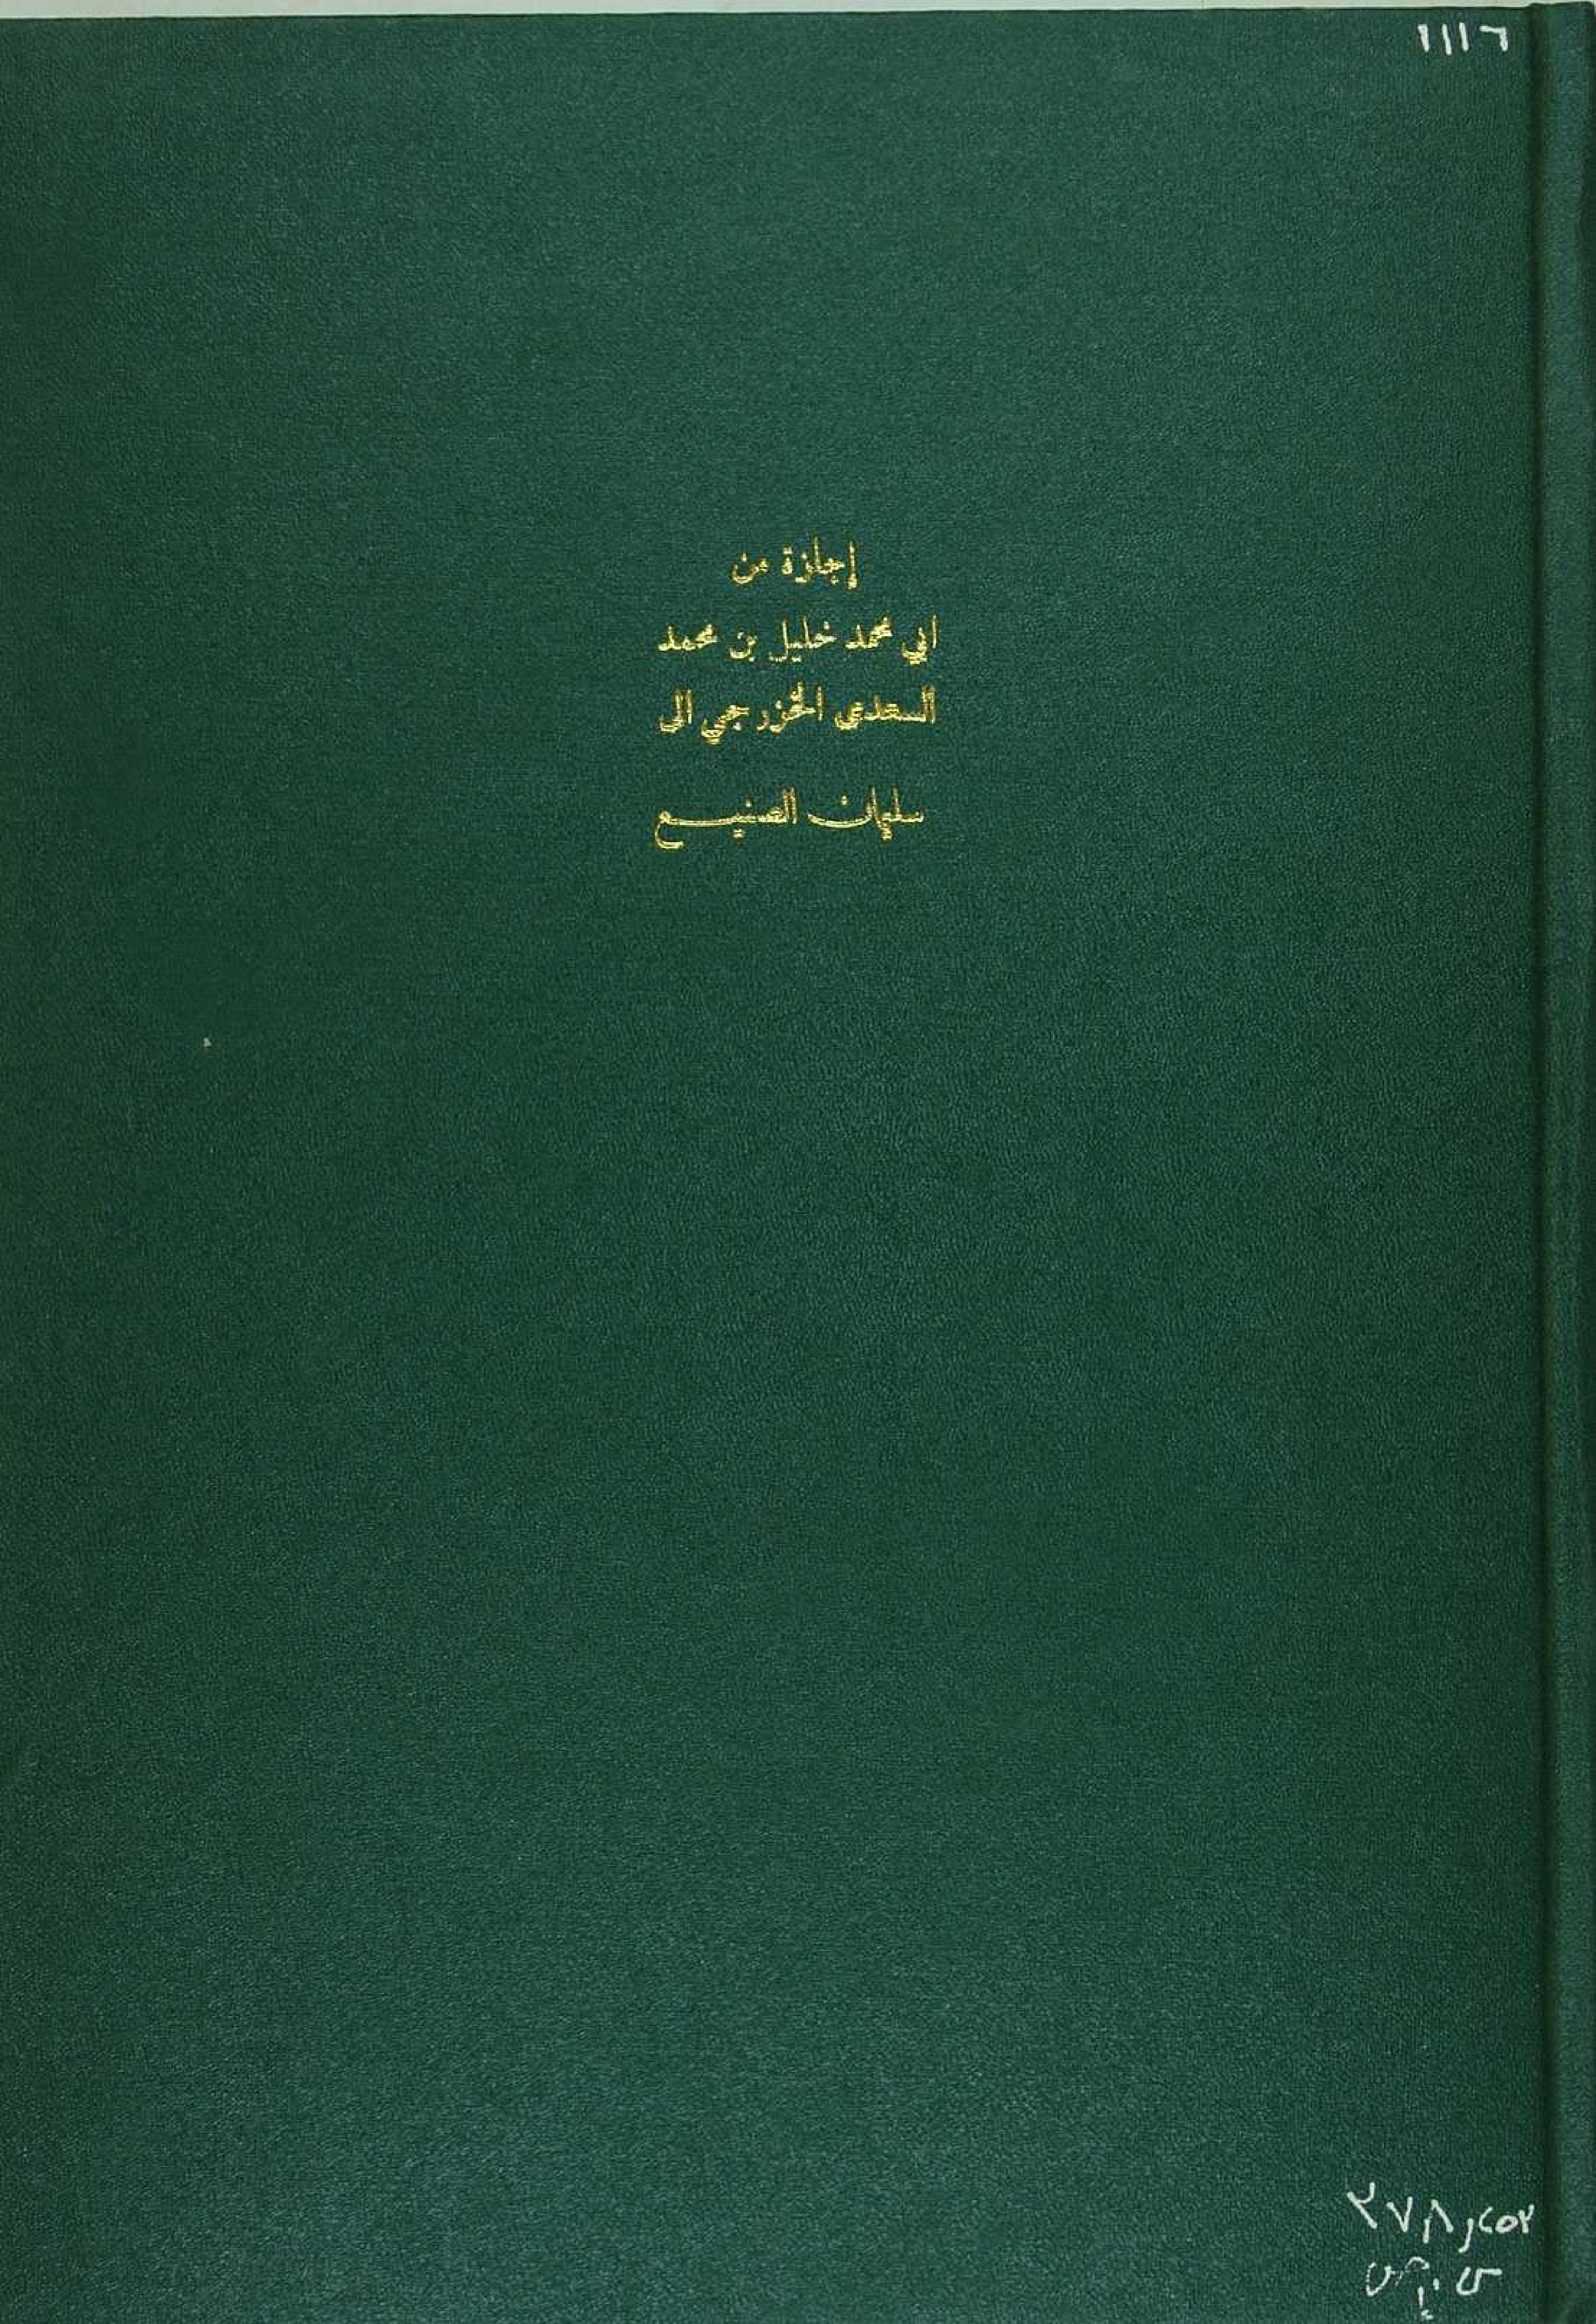 ١١١٦
إجازة من
ابي محمد خليل بن محمد
السعدي الخزرجي الى
سليمان الصنيع